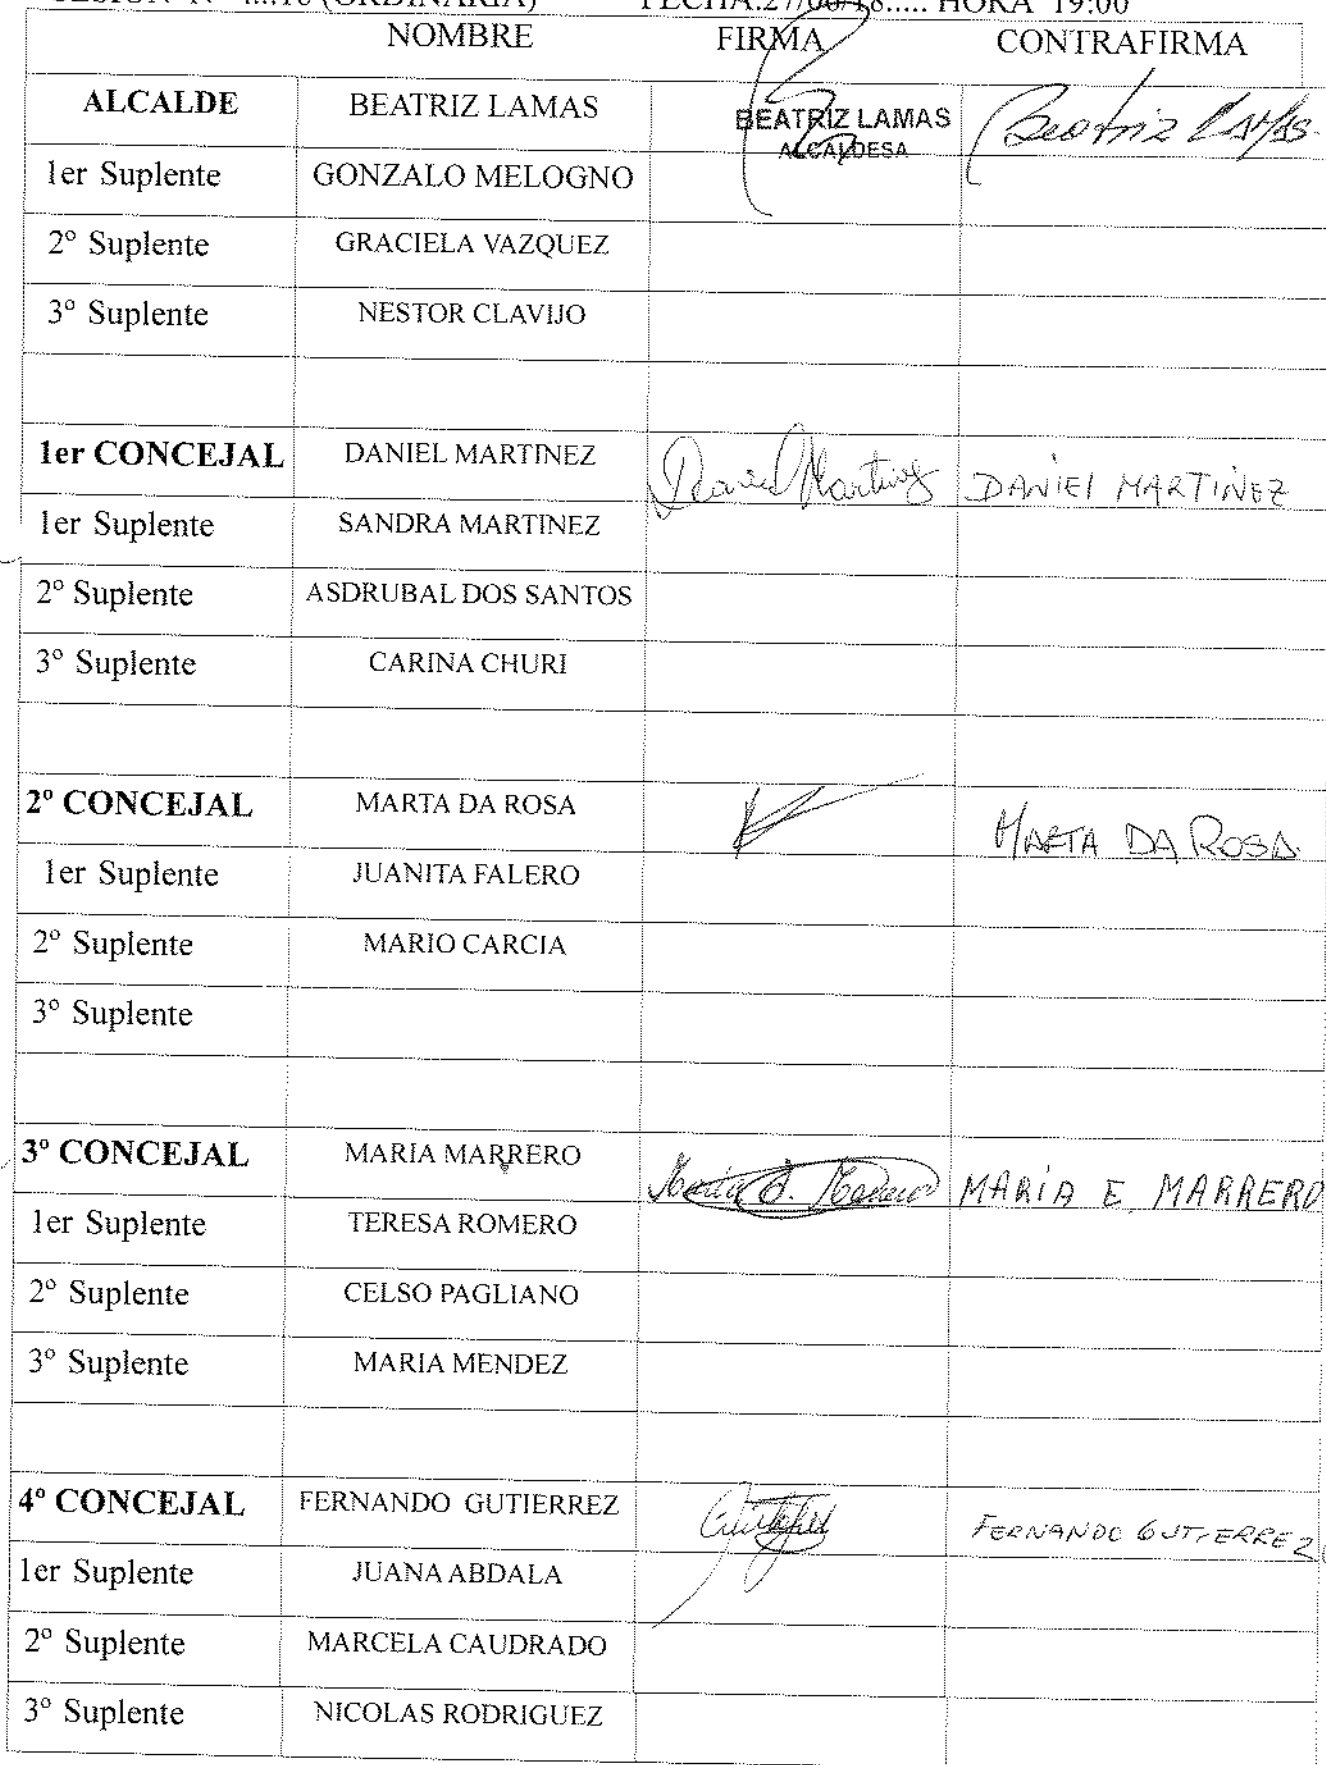 (ORDINARIA) HORA 19:00
NOMBRE FIRMA CONTRAFIRMA
ALCALDE BEATRIZ LAMAS BEATRIZ LAMAS Beatriz LAMAS
ALCALDESA
1er Suplente GONZALO MELOGNO
2º Suplente GRACIELA VAZQUEZ
3º Suplente NESTOR CLAVIJO
1er CONCEJAL DANIEL MARTINEZ Daniel Martinez DANIEl MARTINEZ
1er Suplente SANDRA MARTINEZ
2º Suplente ASDRUBAL DOS SANTOS
3º Suplente CARINA CHURI
2º CONCEJAL MARTA DA ROSA MARTA DA ROSA
1er Suplente JUANITA FALERO
2º Suplente MARIO CARCIA
3º Suplente
3º CONCEJAL MARIA MARRERO MARÍA E. MARRERO
1er Suplente TERESA ROMERO
2º Suplente CELSO PAGLIANO
3º Suplente MARIA MENDEZ
4º CONCEJAL FERNANDO GUTIERREZ FERNANDO GUTIERREZ
1er Suplente JUANA ABDALA
2º Suplente MARCELA CAUDRADO
3º Suplente NICOLAS RODRIGUEZ